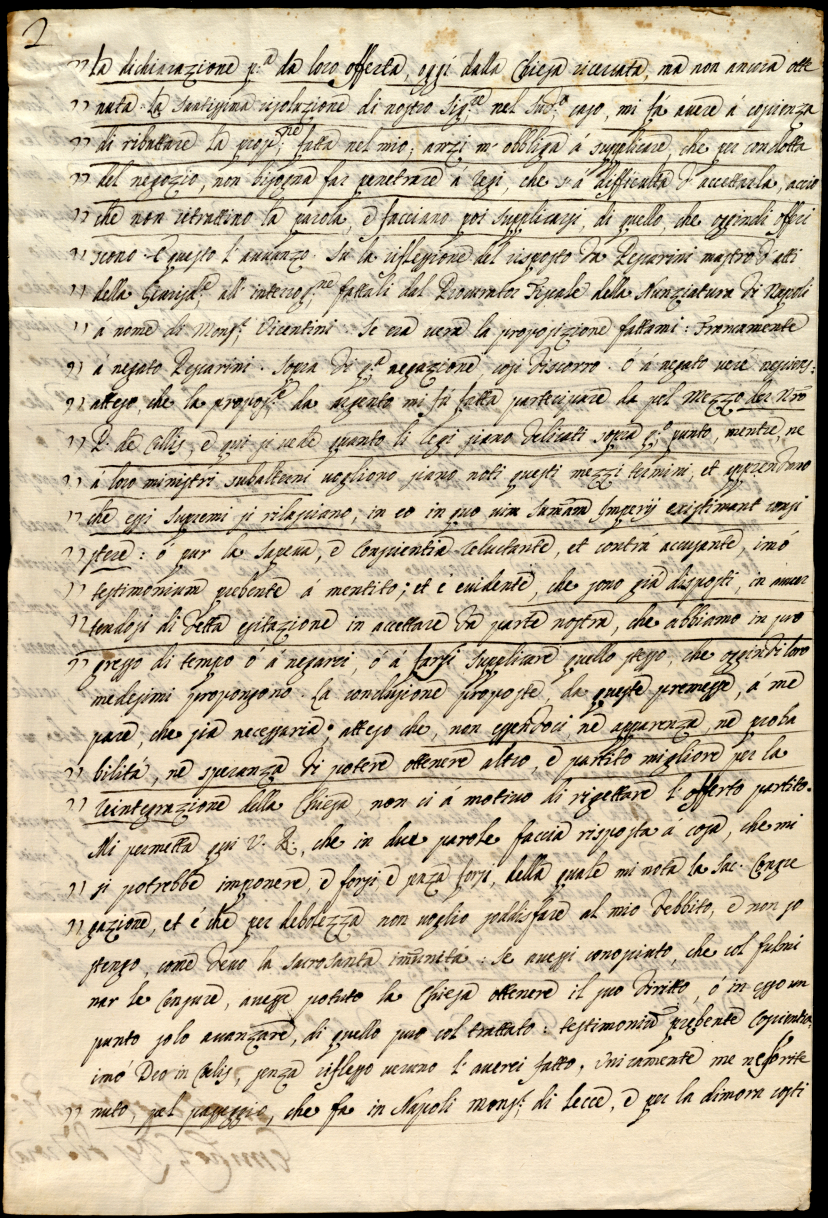 2
" La dichiarazione p.ª da loro offerta, oggi dalla Chiesa ricercata, ma non ancora otte
" nuta. La Santissima risoluzione di nostro Sig.re nel Sud.º caso, mi fà avere á coscienza
" di ributtare la propos.ne fatta nel mio; anzi m'obbliga á supplicare, che per condotta
" del negozio, non bisogna far penetrare á Regi, che s'á difficultà d'accettarla, accio
" che non ritrattino la parola, è facciano poi supplicarsi, di quello, che oggindi offeri
" scono. È questo l'avanzo. Su la riflessione del risposto da Pescarini mastro d'atti
" della Giurisd.e all'interrog.ne fattali dal Procurator Fiscale della Nunziatura di Napoli
" á nome di Mons.r Vicentini. Se era vera la proposizione fattami: Francamente
" á negato Pescarini. Sopra di q.ta negazione così discorro. O á negato vere
" atteso, che la propos.ne da argento mi fù fatta participare da pel mezzo del Nro
" P. de Cillis, è qui si vede quanto li Regi siano delicati sopra q.to punto, mentre, ne
" á loro ministri subalterni vogliono siano noti questi mezzi termini, et apprendono
" che essi supremi si rilasciano, in eo in quo vim summam Imperij existimant consi
" stere: ó pur la sapeva, è conscientia reluctante, et contrá accusante, imó
" testimonium prebente á mentito; et è evidente, che sono già disposti, in
tendosi di detta esitazione in accettare da parte nostra, che abbiamo in pro
" gresso di tempo ó á negarci, ó á farsi supplicare quello stesso, che oggindi loro
medesimi propongono. La conclusione proposte, da queste premesse, á me
pare, che sia necessaria; atteso che, non essendoci, nè apparenza, nè proba
" bilitá, nè speranza di potere ottenere altro, è partito migliore per la
" reintegrazione della Chiesa, non ci á motivo di rigettare l'offerto partito.
Mi permetta qui V. R., che in due parole faccia risposta á cosa, che mi
" si potrebbe imponere, è forsi è senza forsi, della quale mi nota la Sac. Congre
" gazione, et è che per debolezza non voglio soddisfare al mio debbito, è non so
stengo, come devo la Sacrosanta immunitá: se avessi conosciuto, che col fulmi
nar le Censure, avesse potuto la Chiesa ottenere il suo diritto, ó in esso un
punto solo avanzare, di quello può col trattato: testimonium prebente Coscientia,
imó Deo in Celis, senza riflesso veruno l'averei fatto. Unicamente me ne só rite
" nuto, pel passaggio, che fà in Napoli Mons.r di Lecce, è per la dimora costi